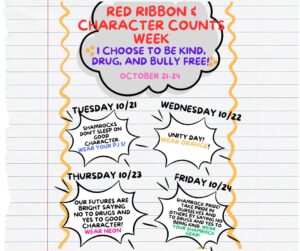 RED RIBBON &
CHARACTER COUNTS
WEEK
I CHOOSE TO BE KIND,
DRUG, AND BULLY FREE!
OCTOBER 21-24
TUESDAY 10/21
SHAMROCKS
DON'T SLEEP ON
GOOD
CHARACTER.
WEAR YOUR PJ'S!
WEDNESDAY
10/22
UNITY DAY!
WEAR ORANGE!
THURSDAY 10/23
OUR FUTURES ARE
BRIGHT SAYING
NO TO DRUGS AND
YES TO GOOD
CHARACTER!
WEAR NEON
FRIDAY 10/24
SHAMROCK PRIDE!
TAKE PRIDE IN
OURSELVES AND
OTHERS BY SAYING
NO TO DRUGS AND YES TO
BEING KIND! WEAR YOUR
SHAMROCK
GEAR!